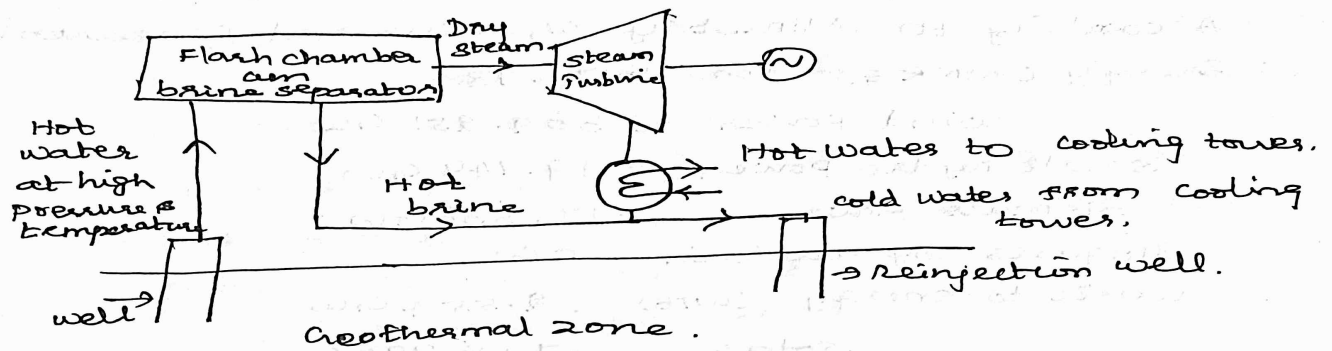 Dry
steam
Flash chamber
am
brine separator
steam
Turbine
Hot
water
at high
pressure &
temperature
Hot
brine
Hot water to cooling tower.
cold water from cooling
tower.
well
reinjection well.
Geothermal zone.